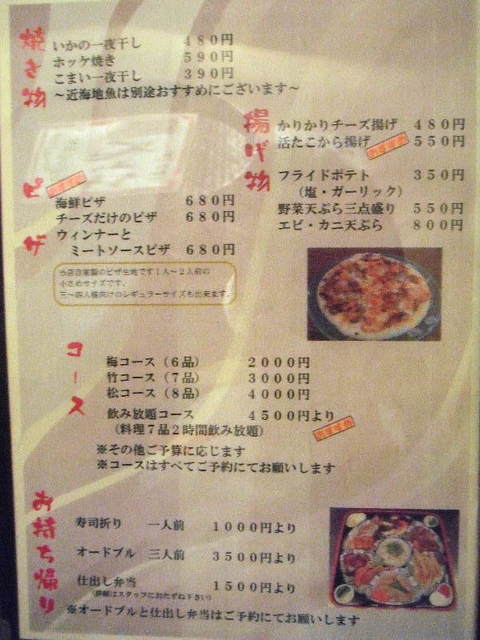 焼き物
いかの一夜干し 480円
ホッケ焼き 590円
こまい一夜干し 390円
～近海地魚は別途おすすめにございます～
揚げ物
かりかりチーズ揚げ 480円
活たこから揚げ 550円
フライドポテト 350円
（塩・ガーリック）
野菜天ぷら三点盛り 550円
エビ・カニ天ぷら 800円
ピザ
海鮮ピザ 680円
チーズだけのピザ 680円
ウィンナーと
ミートソースピザ 680円
当店自家製のピザ生地です1人～2人前の
小さめサイズです。
三～四人様向けのレギュラーサイズも出来ます。
コース
梅コース（6品） 2000円
竹コース（7品） 3000円
松コース（8品） 4000円
飲み放題コース 4500円より
（料理7品2時間飲み放題）
おすすめ
※その他ご予算に応じます
※コースはすべてご予約にてお願いします
お持ち帰り
寿司折り 一人前 1000円より
オードブル 三人前 3500円より
仕出し弁当 1500円より
（詳細はスタッフにおたずね下さい）
※オードブルと仕出し弁当はご予約にてお願いします